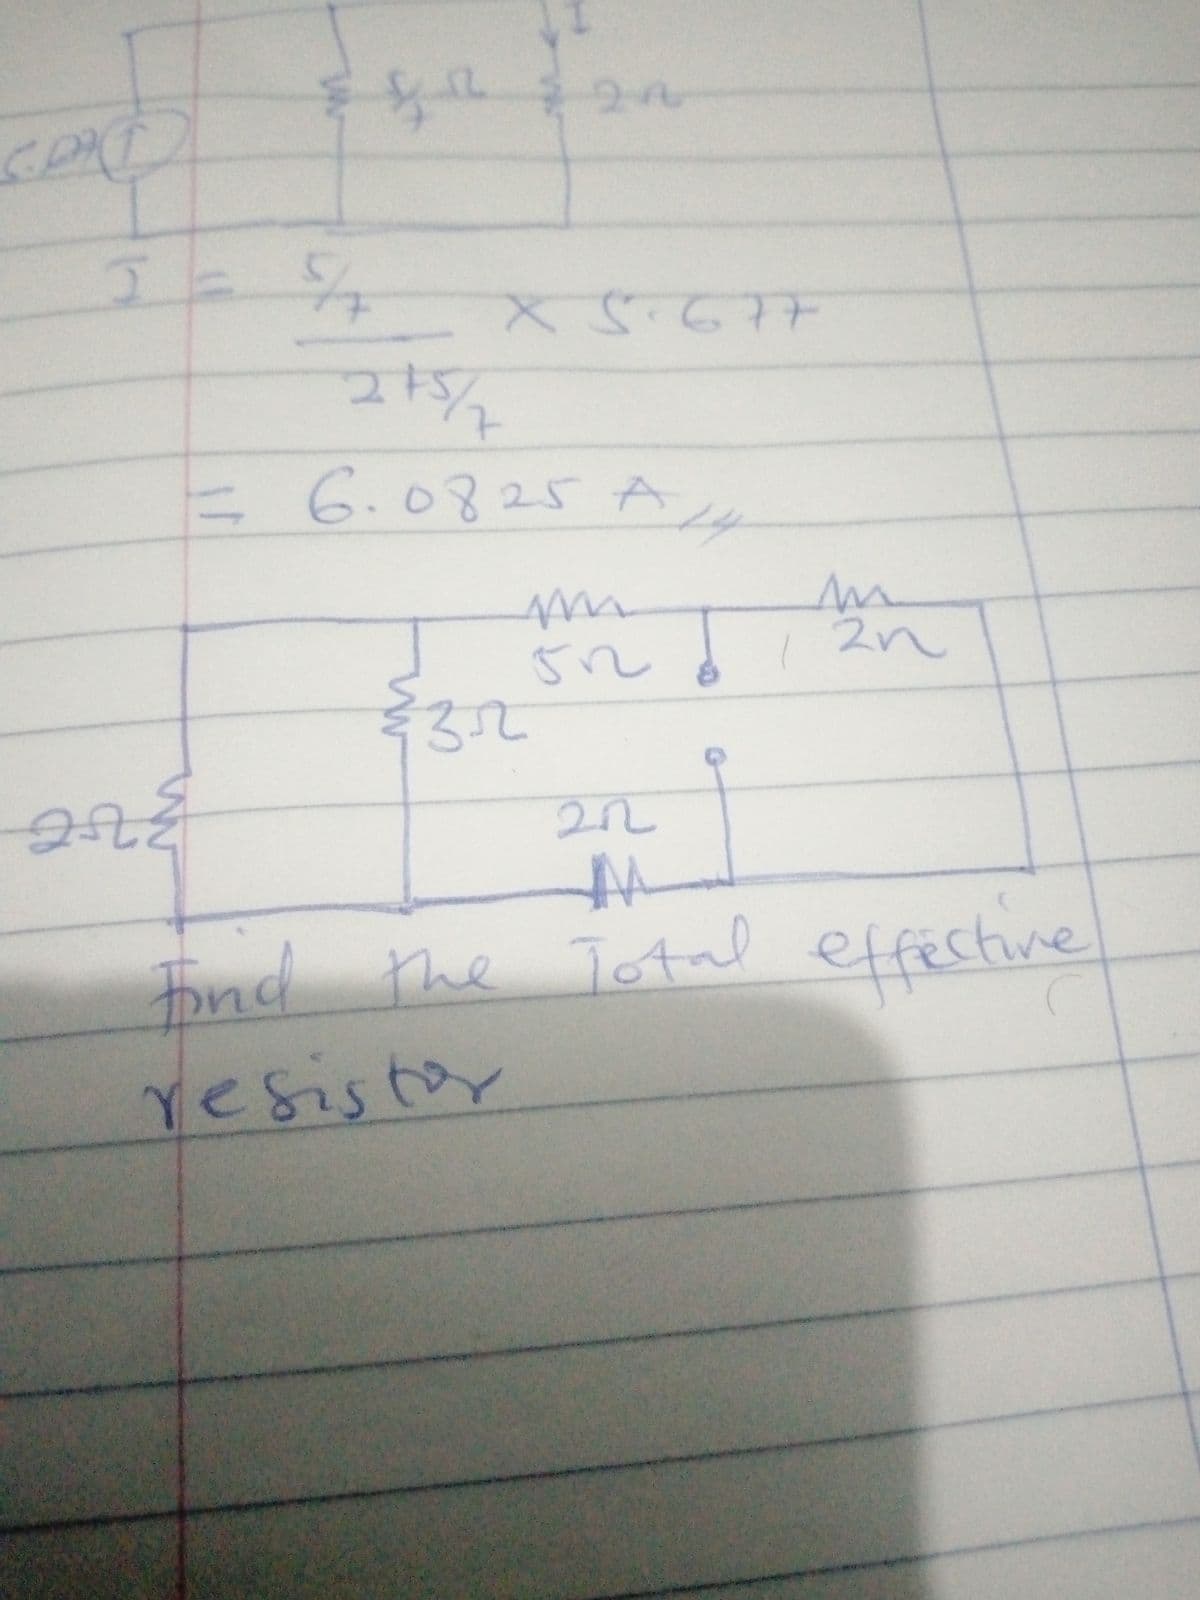 I
5/7 Ω
2Ω
I = 5/7
× 5.677
2+5/7
= 6.0825 A
5Ω
2Ω
3Ω
2Ω
2Ω
Find the Total effective
resistor